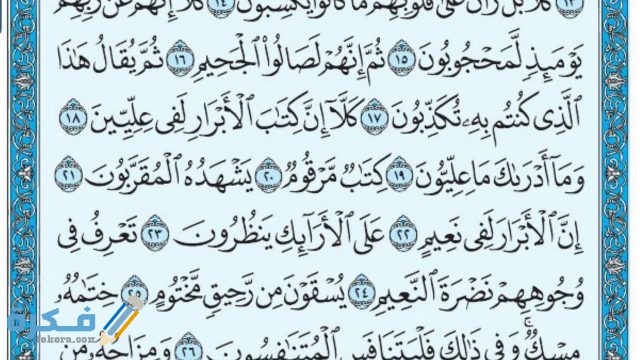 ١٣ كَلَّا بَلْ رَانَ عَلَىٰ قُلُوبِهِم مَّا كَانُوا۟ يَكْسِبُونَ ١٤ كَلَّآ إِنَّهُمْ عَن رَّبِّهِمْ
يَوْمَئِذٍ لَّمَحْجُوبُونَ ١٥ ثُمَّ إِنَّهُمْ لَصَالُوا۟ ٱلْجَحِيمِ ١٦ ثُمَّ يُقَالُ هَٰذَا
ٱلَّذِى كُنتُم بِهِۦ تُكَذِّبُونَ ١٧ كَلَّآ إِنَّ كِتَٰبَ ٱلْأَبْرَارِ لَفِى عِلِّيِّينَ ١٨
وَمَآ أَدْرَىٰكَ مَا عِلِّيُّونَ ١٩ كِتَٰبٌ مَّرْقُومٌ ٢٠ يَشْهَدُهُ ٱلْمُقَرَّبُونَ ٢١
إِنَّ ٱلْأَبْرَارَ لَفِى نَعِيمٍ ٢٢ عَلَى ٱلْأَرَآئِكِ يَنظُرُونَ ٢٣ تَعْرِفُ فِى
وُجُوهِهِمْ نَضْرَةَ ٱلنَّعِيمِ ٢٤ يُسْقَوْنَ مِن رَّحِيقٍ مَّخْتُومٍ ٢٥ خِتَٰمُهُۥ
مِسْكٌ ۚ وَفِى ذَٰلِكَ فَلْيَتَنَافَسِ ٱلْمُتَنَٰفِسُونَ ٢٦ وَمِزَاجُهُۥ مِن
فكرة
fekera.com